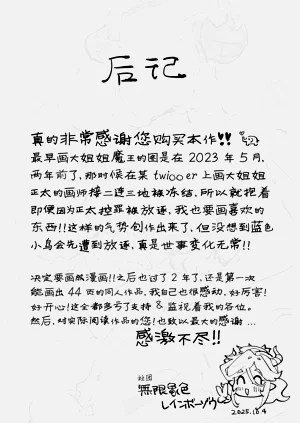 后记
真的非常感谢您购买本作!!
最早画大姐姐魔王的图是在 2023 年 5 月,
两年前了, 那时候在某 twiooer 上画大姐姐
正太的画师接二连三地被冻结, 所以就抱着
即便因为正太控罪被放逐, 我也要画喜欢的
东西!!这样的气势创作出来了, 但没想到蓝色
小鸟会先遭到放逐, 真是世事变化无常!!
决定要画成漫画!!之后也过了 2 年了, 还是第一次
能画出 44 页的同人作品, 我自己也很感动, 好厉害!
好开心!这全都多亏了支持 & 监视着我的各位。
然后, 对实际阅读作品的您!也致以最大的感谢 ...
感激不尽!!
社团
無限景色
レインボーゾウ
2025.10.4